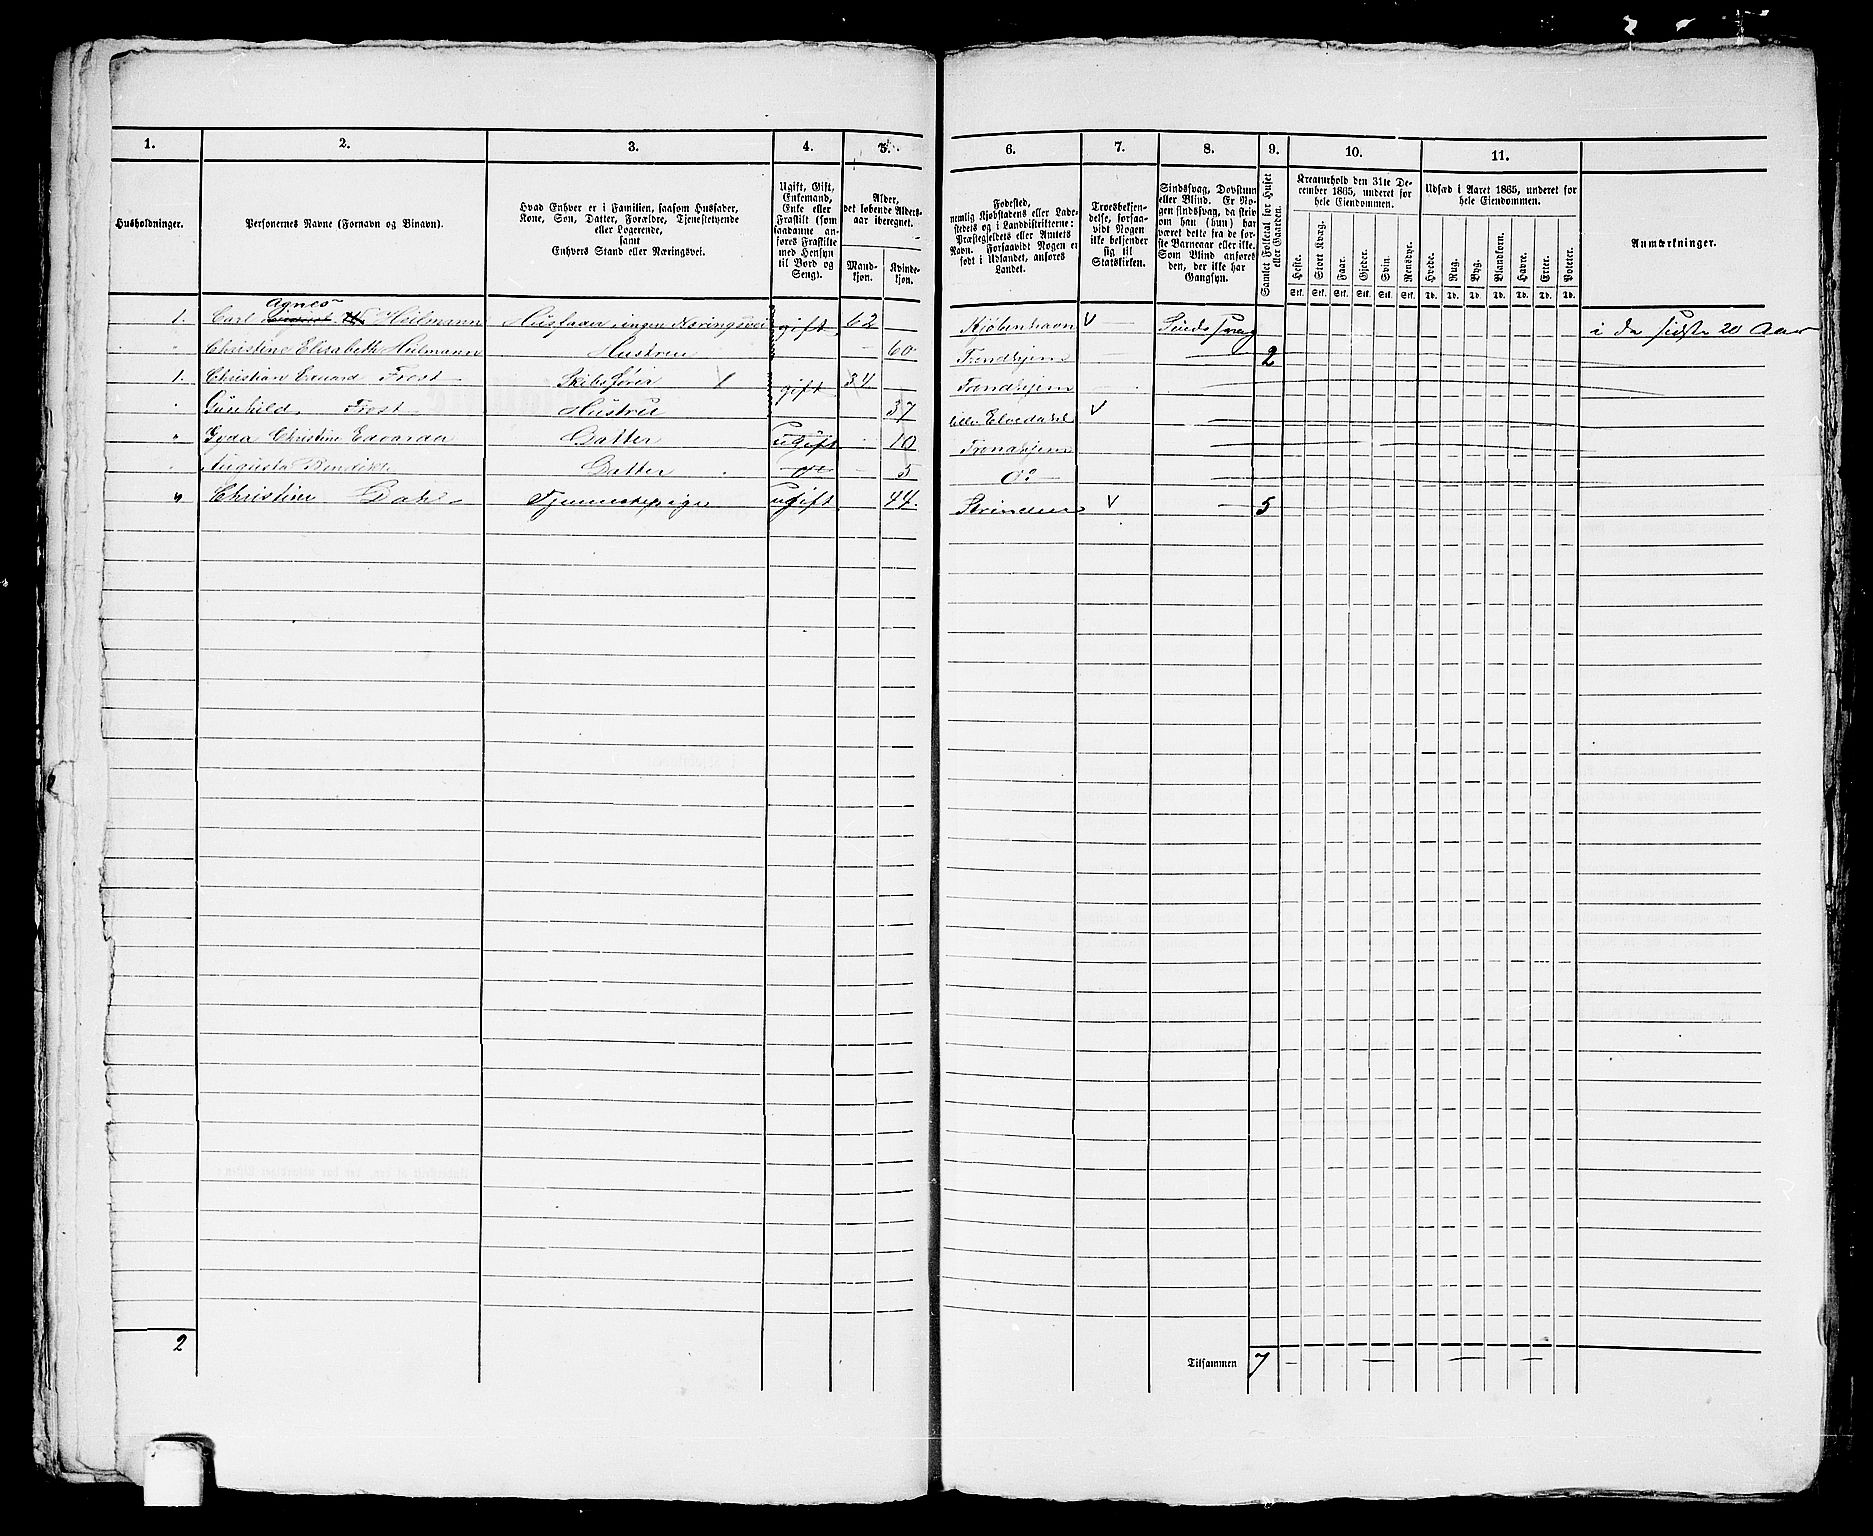 1. 2. 3. 4. 5. 6. 7. 8. 9. 10. 11.
Husholdninger.
Personernes Navne (Fornavn og Binavn).
Hvad Enhver er i Familien, saasom Husfader,
Kone, Søn, Datter, Forældre, Tjenestetyende
eller Logerende,
samt
Enhvers Stand eller Næringsvei.
Ugift, Gift,
Enkemand,
Enke eller
Fraskilt (som
saadanne an-
føres Fraskilte
med Hensyn
til Bord og
Seng).
Alder,
det løbende Alders-
aar iberegnet.
Mand-
kjøn.
Kvinde-
kjøn.
Fødested,
nemlig Kjøbstadens eller Lade-
stedets og i Landdistrikterne:
Præstegjeldets eller Amtets
Navn. Forsaavidt Nogen er
født i Udlandet, anføres
Landet.
Troesbekjen-
delse, forsaa-
vidt Nogen
ikke bekjender
sig til
Statskirken.
Sindssvag, Døvstum
eller Blind. Er No-
gen sindssvag, da skriv
om han (hun) har
været dette fra de før-
ste Barneaar eller ikke.
Som Blind anføres
den, der ikke har
Gangsyn.
Samlet Folketal for Huset
eller Gaarden.
Kreaturhold den 31te De-
cember 1865, underet for
hele Eiendommen.
Heste. Stort Kvæg. Faar. Gjeder. Svin. Rensdyr.
Stk. Stk. Stk. Stk. Stk. Stk.
Udsæd i Aaret 1865, underet for
hele Eiendommen.
Hvede. Rug. Byg. Blandkorn. Havre. Erter. Poteter.
Td. Td. Td. Td. Td. Td. Td.
Anmærkninger.
Agnes
1. Carl Heilmann Husfader, ingen Næringsvei gift 62 Kjøbenhavn V Sindssvag i de sidste 20 Aar
" Christine Elisabeth Heilmann Hustru 60 Trondhjem 2
1. Christian Eduard Frost Skibsfører 1 gift 34 Trondhjem
" Gunhild Frost Hustru 37 lille Elvedalen V
" Gyda Christine Edvarda Datter ugift 10 Trondhjem
" Augusta Bendikte Datter do 5 do
" Christine Dahl Tjenestepige ugift 44 Strinden V 5
2 Tilsammen 7